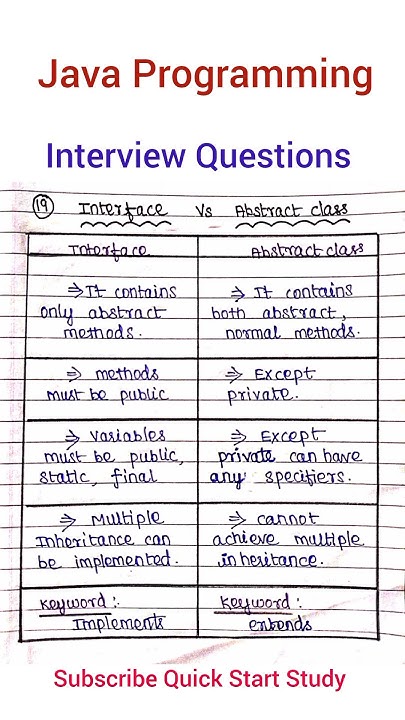 Java Programming
Interview Questions
19 Interface Vs Abstract class
Interface
Abstract class
⇒ It contains
only abstract
methods.
⇒ It contains
both abstract,
normal methods.
⇒ methods
must be public
⇒ Except
private.
⇒ Variables
must be public,
static, final
⇒ Except
private can have
any specifiers.
⇒ Multiple
Inheritance can
be implemented.
⇒ cannot
achieve multiple
inheritance.
Keyword :
Implements
Keyword :
extends
Subscribe Quick Start Study